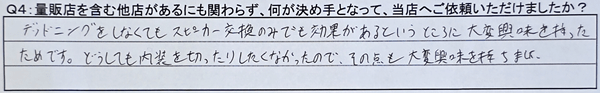 Q4：量販店を含む他店があるにも関わらず、何が決め手となって、当店へご依頼いただけましたか？
デッドニングをしなくてもスピーカー交換のみでも効果があるというところに大変興味を持った
ためです。どうしても内装を切ったりしたくなかったので、その点も大変興味を持ちました。